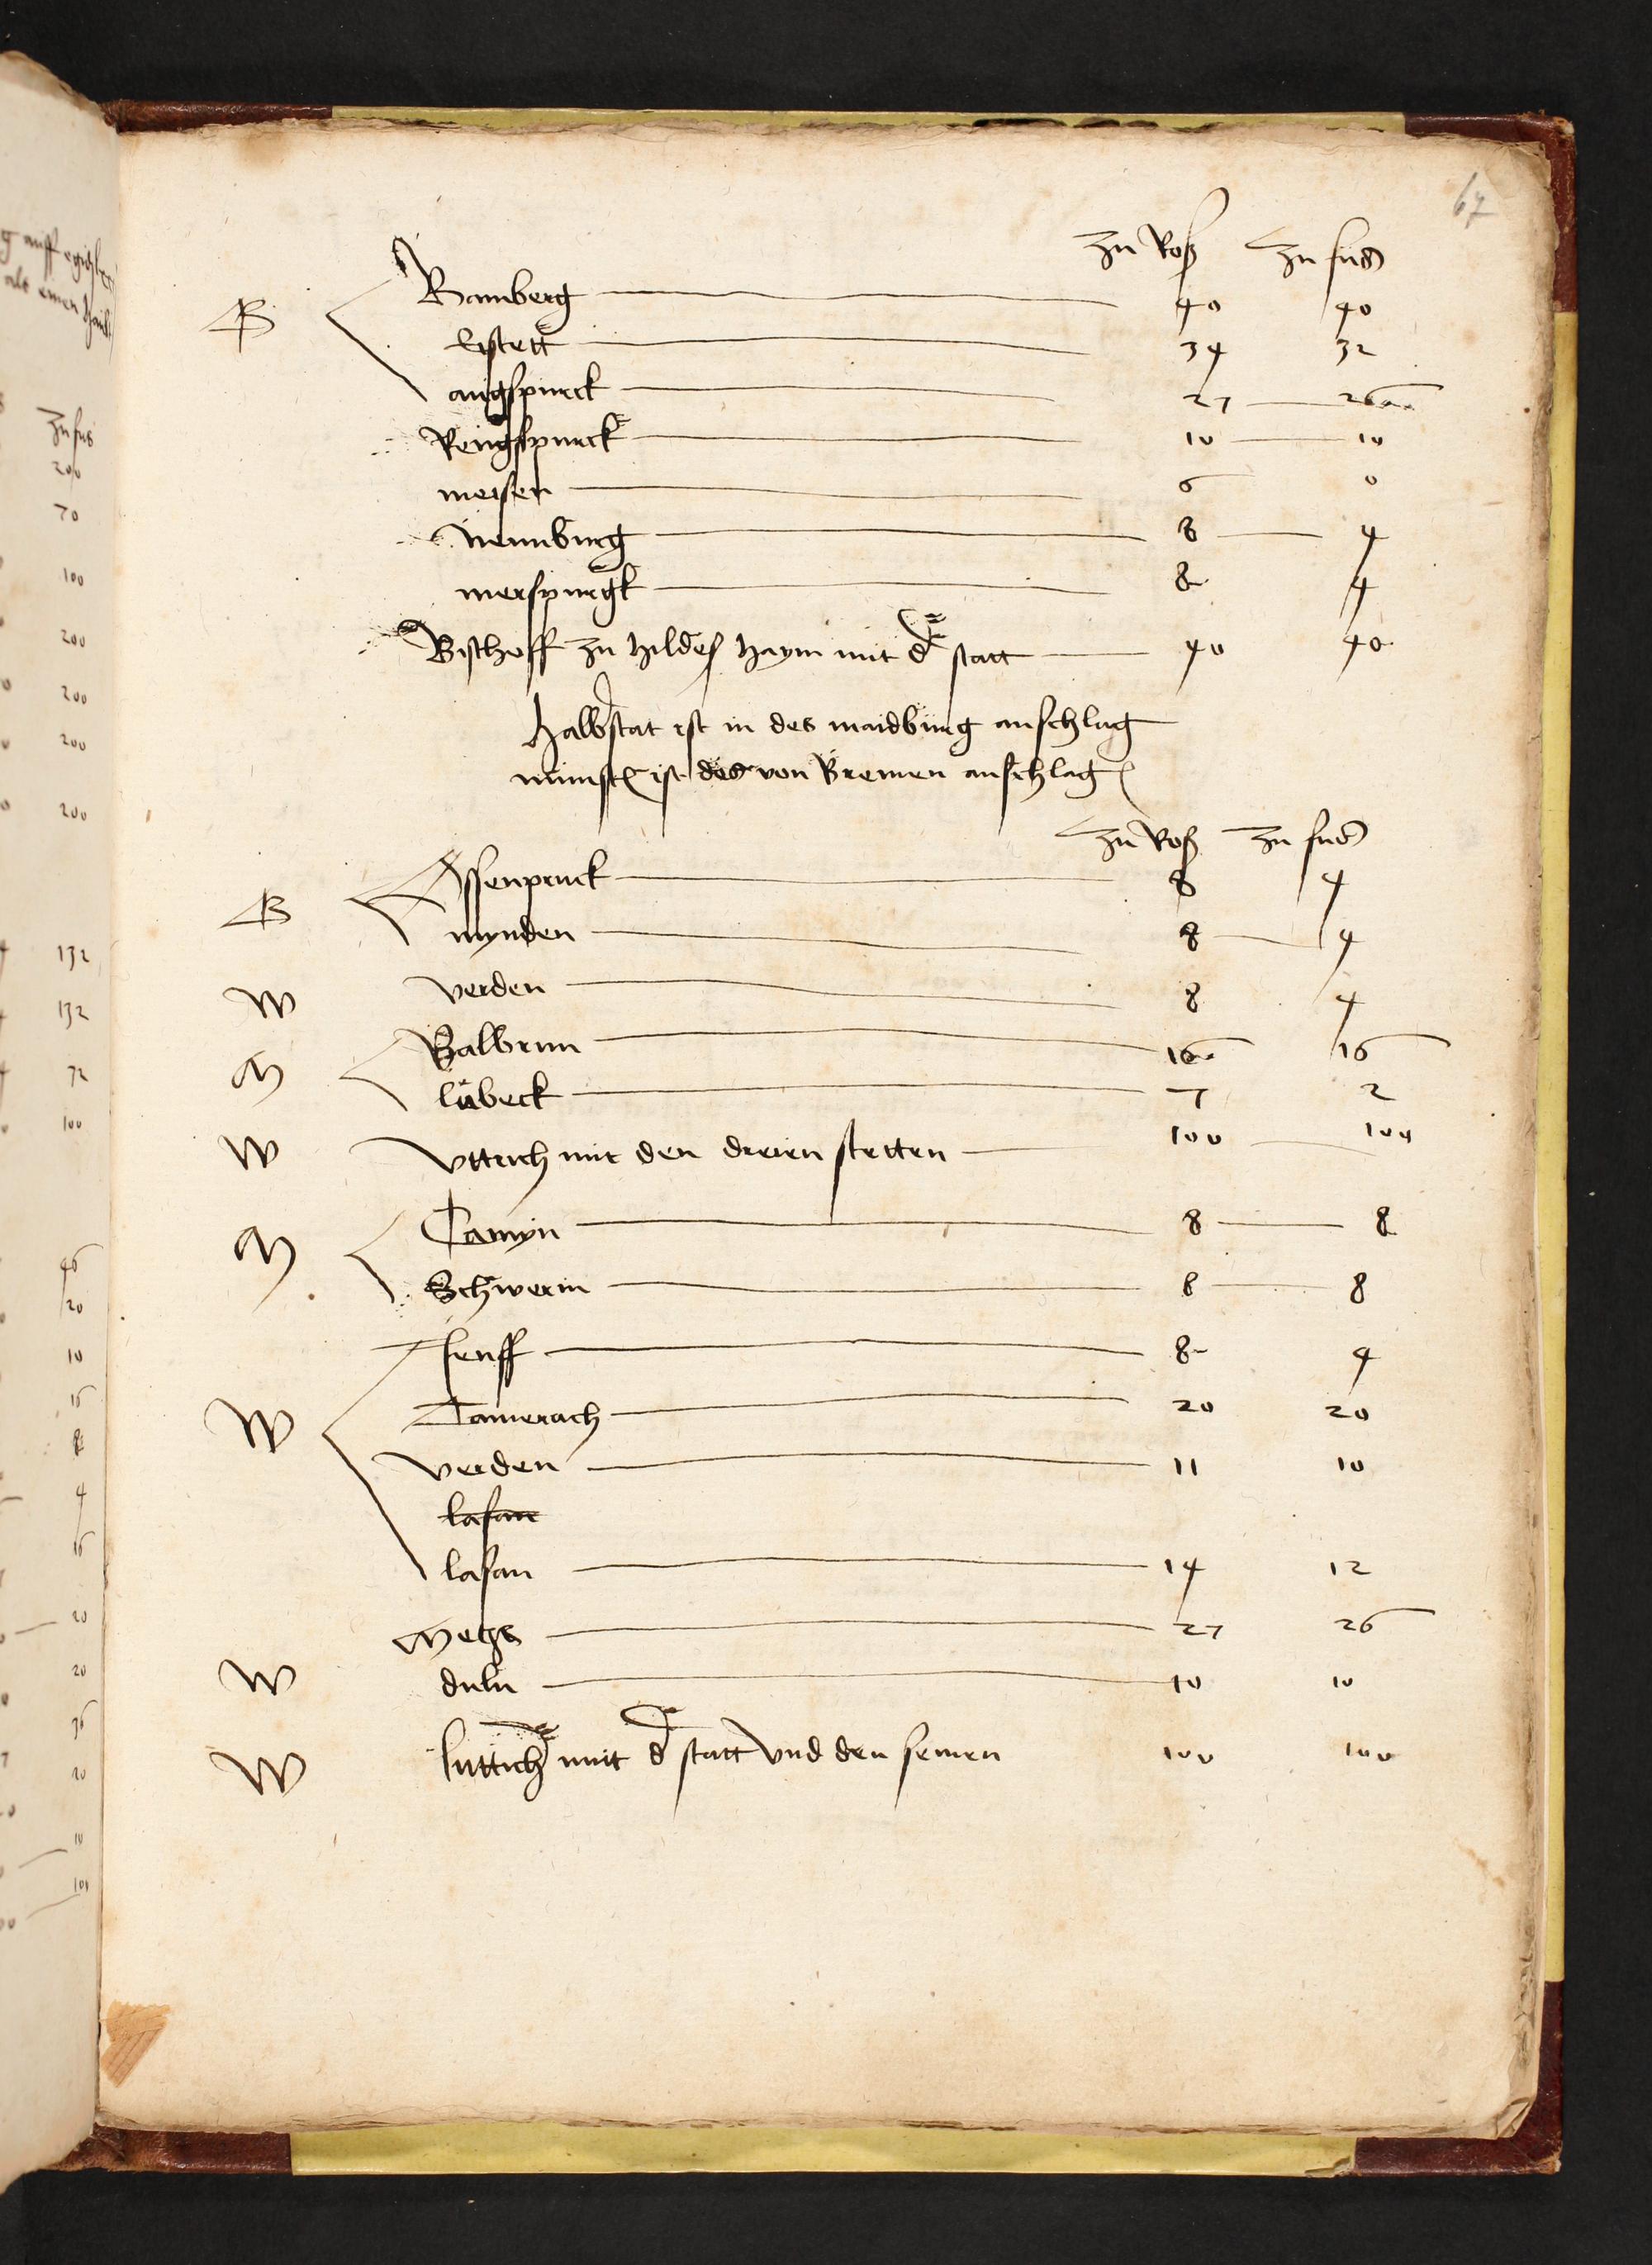 67
zu Roß zu fuß
B Bamberg 40 40
Eistett 34 32
augspurck 27 26
Rengspurck 10 10
meisen 6 0
Neunburg 8 4
merspurgk 8 4
Bischoff zu Hildeß Haym mit d' statt 40 40
Halb'stat ist in des maidburg anschlag
munst' ist des von Bremen anschlag
zu Roß zu fuß
B Assenpruck 8 4
mynden 8 4
W verden 8 4
M Balbrun 16 16
lübeck 7 2
W Uttrich mit den dreien stetten 100 100
M Camyn 8 8
Schwerin 8 8
W Jenff 8 4
Camerach 20 20
verden 11 10
lasan
lasan 14 12
Metzs 27 26
W duln 10 10
W luttich mit d' statt und den seinen 100 100
zu fus
200
70
100
200
200
200
200
132
132
72
100
46
20
10
16
8
4
16
20
20
36
20
10
100